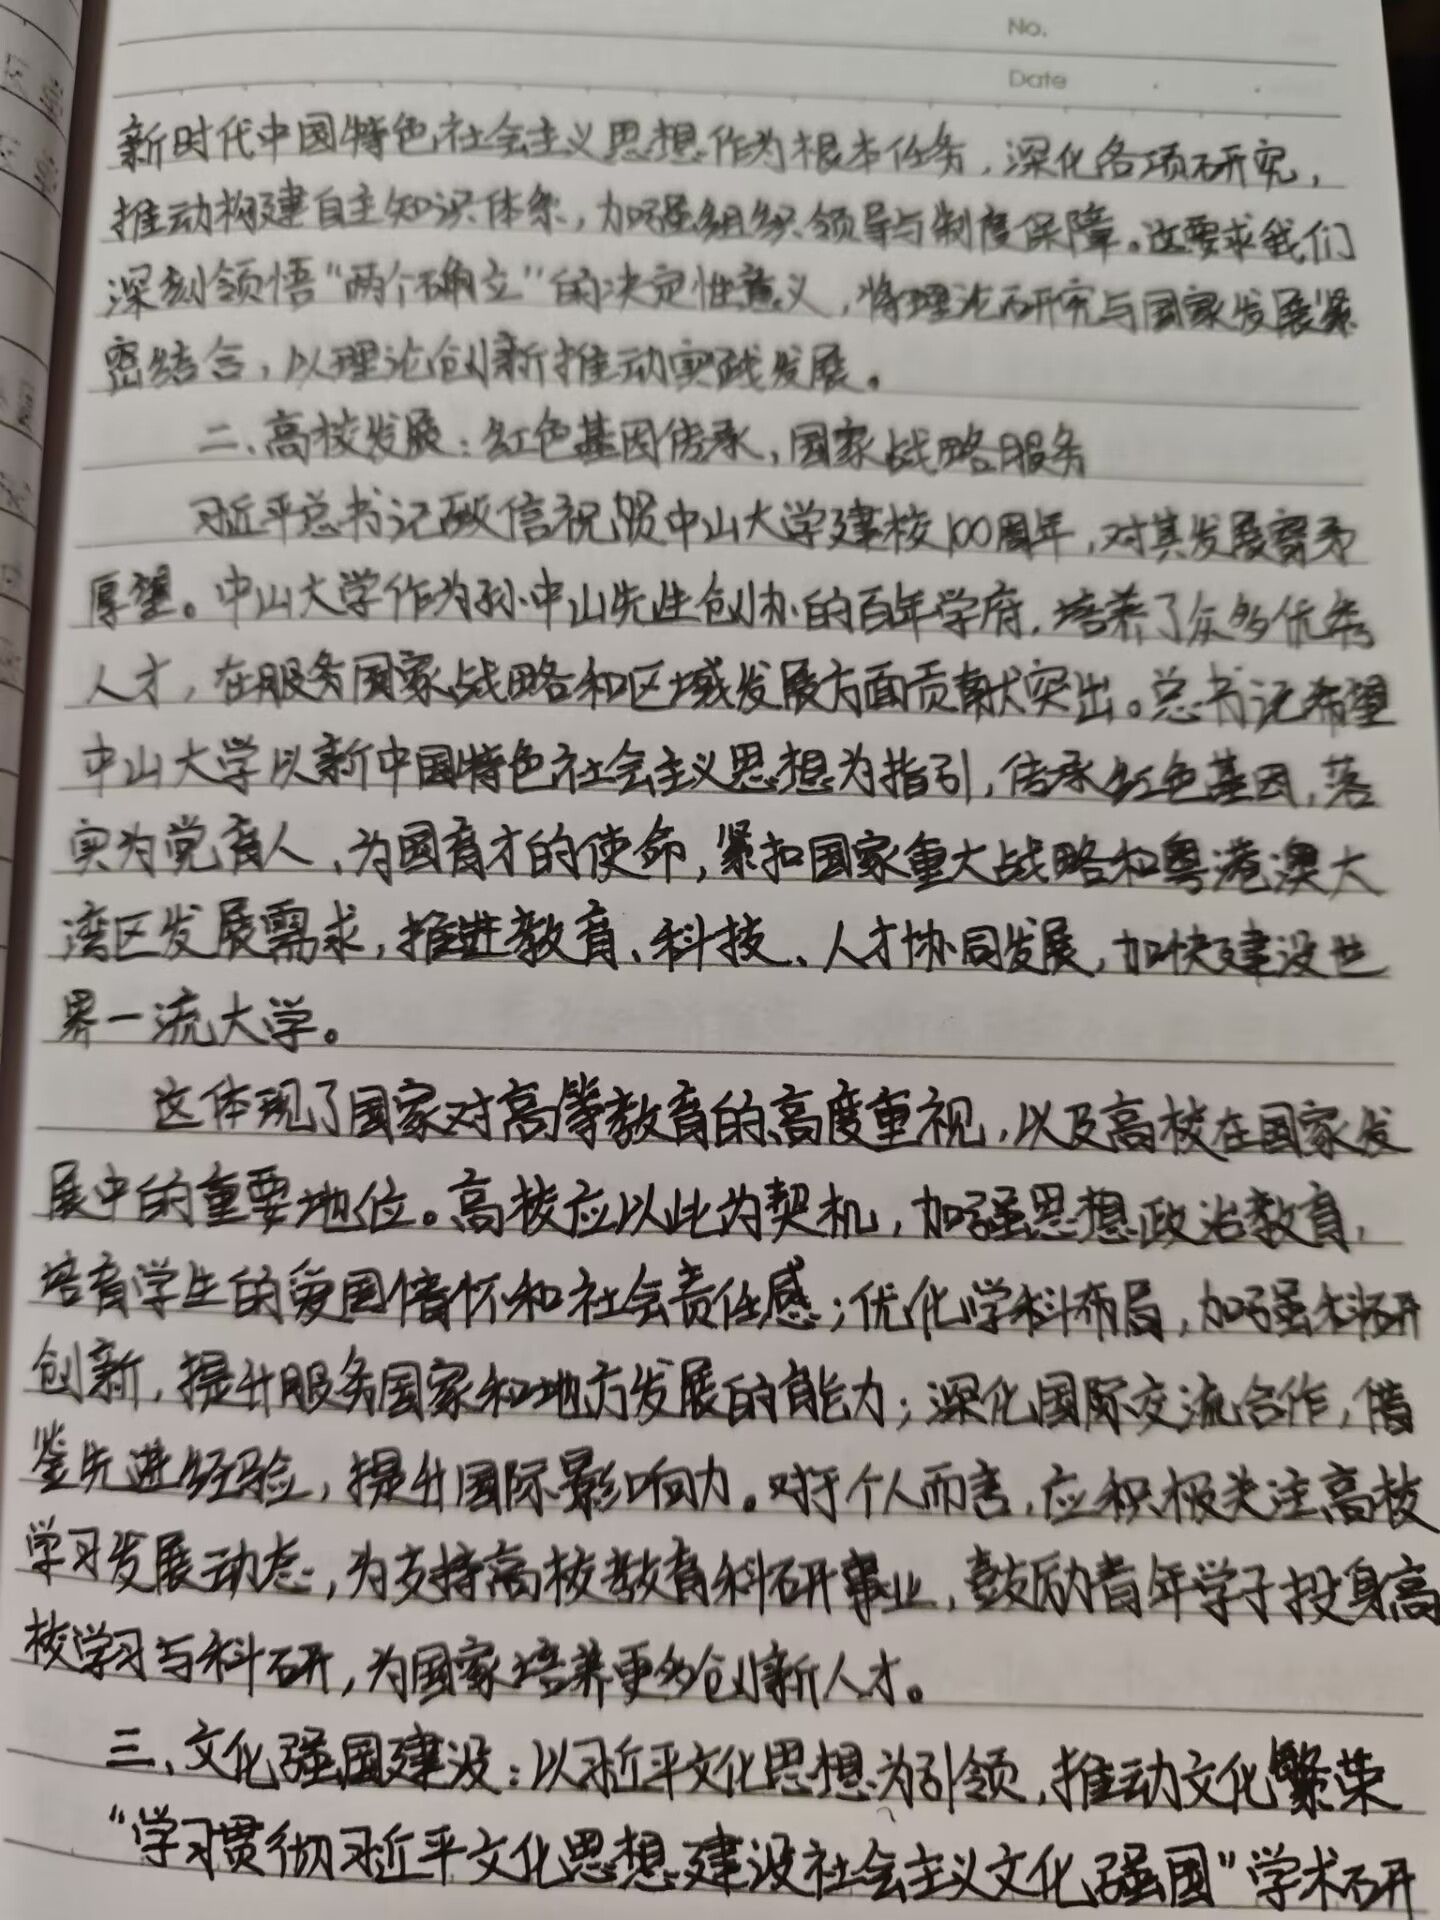 No.
Date
新时代中国特色社会主义思想作为根本任务，深化各项研究，
推动构建自主知识体系，加强组织领导与制度保障。这要求我们
深刻领悟“两个确立”的决定性意义，将理论研究与国家发展紧
密结合，以理论创新推动实践发展。
二、高校发展：红色基因传承，国家战略服务
习近平总书记致信祝贺中山大学建校100周年，对其发展寄予
厚望。中山大学作为孙中山先生创办的百年学府，培养了众多优秀
人才，在服务国家战略和区域发展方面贡献突出。总书记希望
中山大学以新中国特色社会主义思想为指引，传承红色基因，落
实为党育人、为国育才的使命，紧扣国家重大战略和粤港澳大
湾区发展需求，推进教育、科技、人才协同发展，加快建设世
界一流大学。
这体现了国家对高等教育的高度重视，以及高校在国家发
展中的重要地位。高校应以此为契机，加强思想政治教育，
培育学生的爱国情怀和社会责任感；优化学科布局，加强科研
创新，提升服务国家和地方发展的能力；深化国际交流合作，借
鉴先进经验，提升国际影响力。对于个人而言，应积极关注高校
学习发展动态，为支持高校教育科研事业，鼓励青年学子投身高
校学习与科研，为国家培养更多创新人才。
三、文化强国建设：以习近平文化思想为引领，推动文化繁荣
“学习贯彻习近平文化思想建设社会主义文化强国”学术研